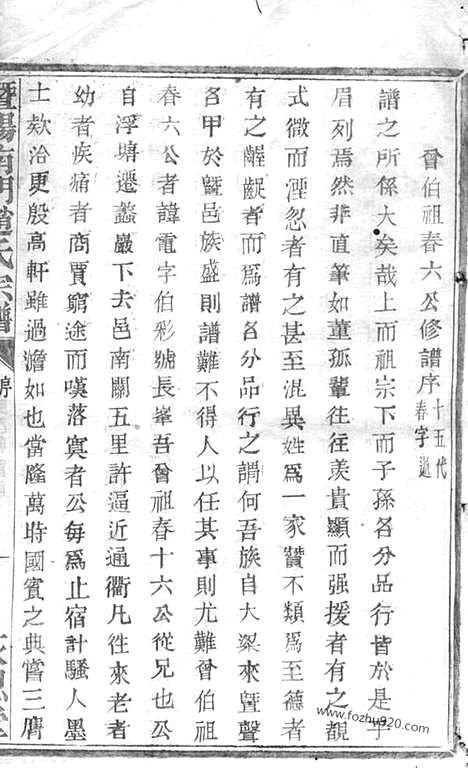 曾伯祖春六公修譜序 十五代春字遞
譜之所係大矣哉上而祖宗下而子孫各分品行皆於是乎
眉列焉然非直筆如董孤輩往往羨貴顯而强援者有之覩
式微而湮忽者有之甚至混異姓爲一家贊不類爲至德者
有之齷齪者而爲譜各分品行之謂何吾族自大梁來曁聲
名甲於曁邑族盛則譜難不得人以任其事則尤難曾伯祖
春六公者諱電字伯彩號長峯吾曾祖春十六公從兄也公
自浮塘遷蠡巖下去邑南關五里許逼近通衢凡徃來老者
幼者疾痛者商賈窮途而嘆落寞者公每爲止宿計騷人墨
士欸洽更殷高軒雖過澹如也當隆萬時國賓之典嘗三膺
曁陽南門趙氏宗譜 序
www.fozhu920.com